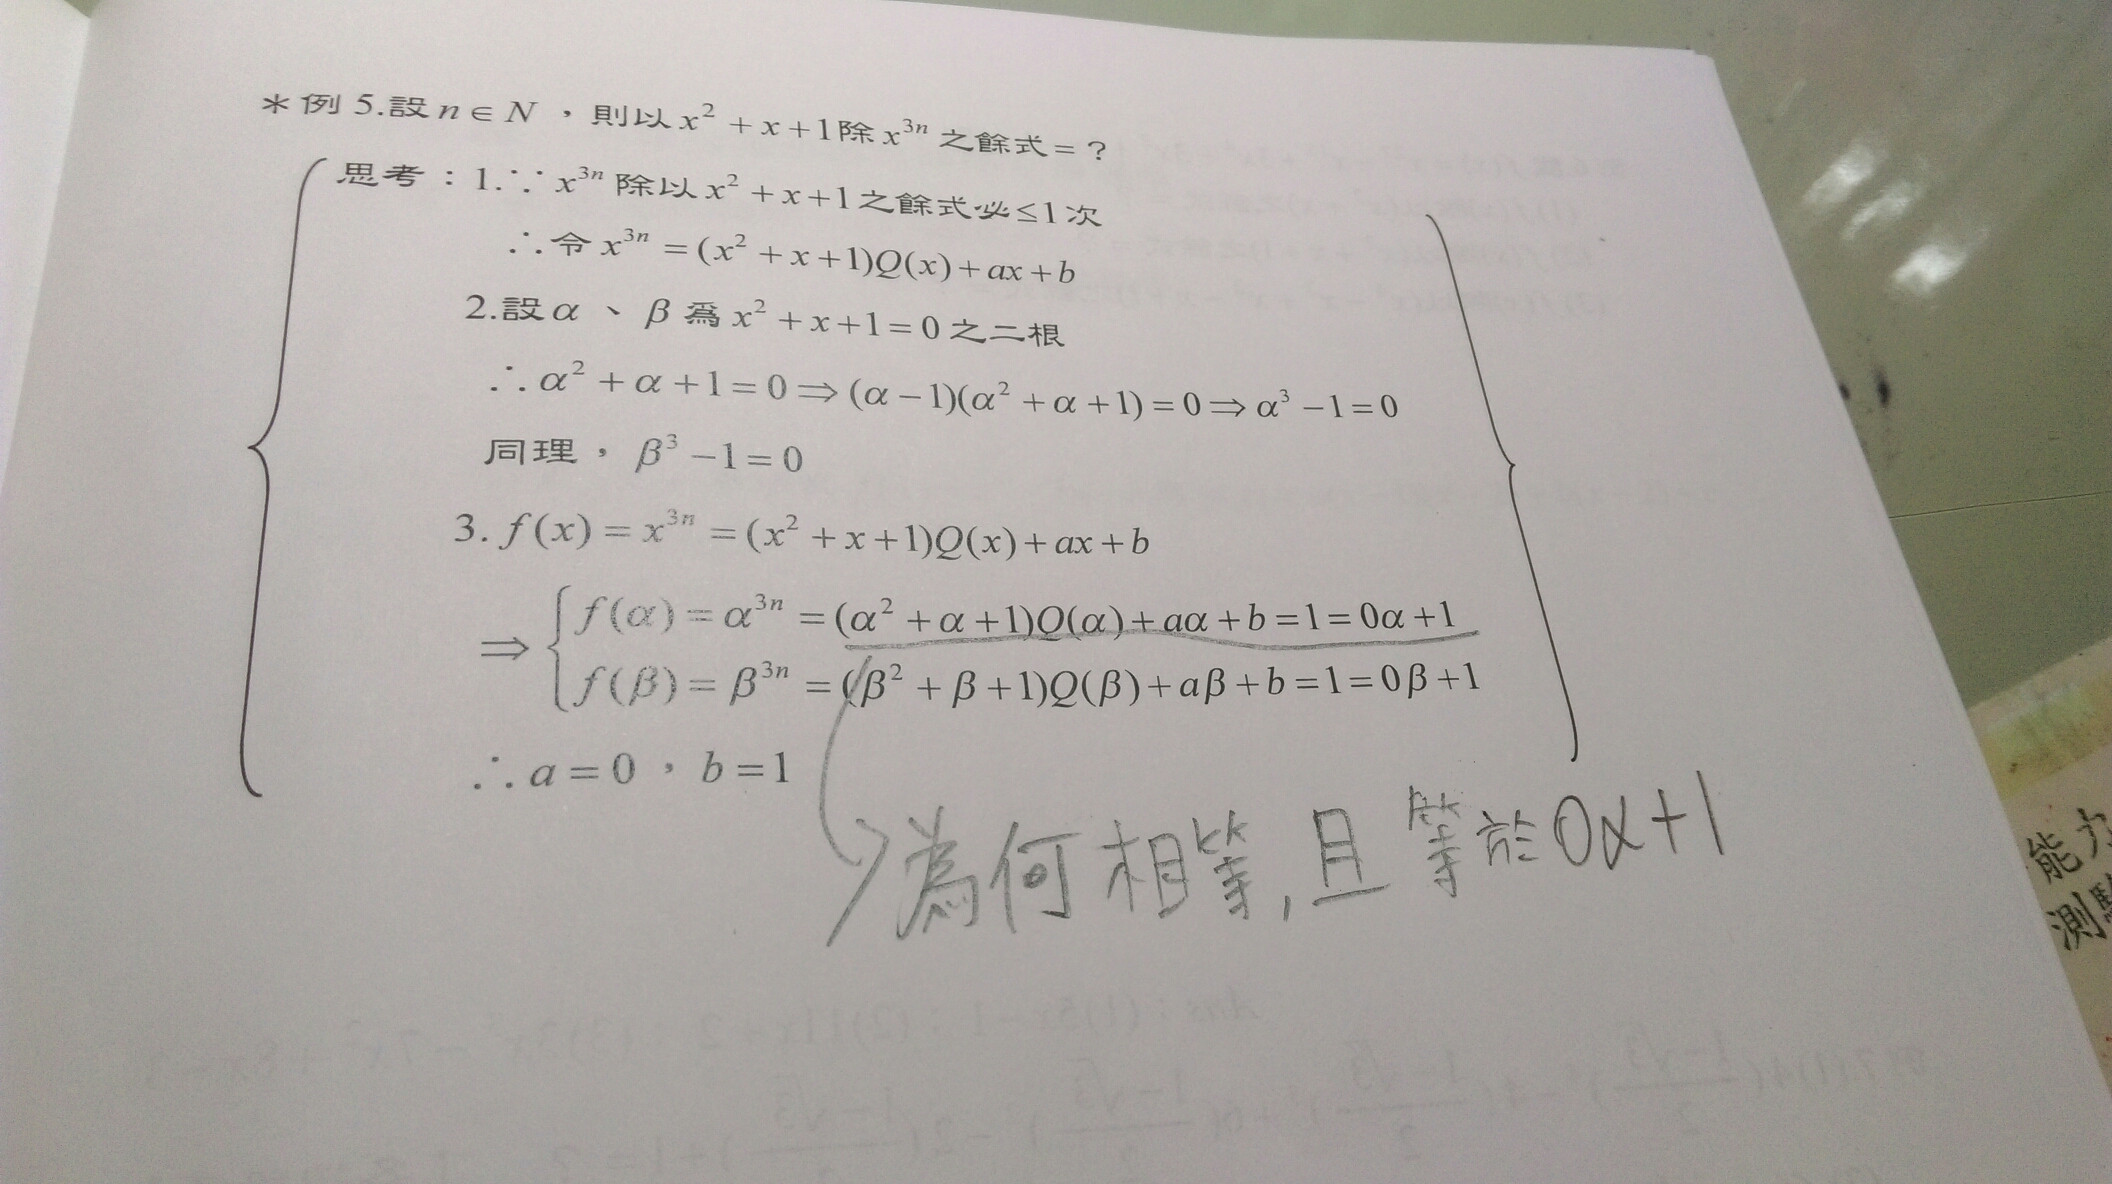 ＊例 5.設 n ∈ N ，則以 x² + x + 1 除 x³ⁿ 之餘式 = ?
思考：1.∵ x³ⁿ 除以 x² + x + 1 之餘式必 ≤ 1 次
∴令 x³ⁿ = (x² + x + 1)Q(x) + ax + b
2.設 α 、 β 為 x² + x + 1 = 0 之二根
∴ α² + α + 1 = 0 ⇒ (α − 1)(α² + α + 1) = 0 ⇒ α³ − 1 = 0
同理， β³ − 1 = 0
3. f(x) = x³ⁿ = (x² + x + 1)Q(x) + ax + b
⇒ { f(α) = α³ⁿ = (α² + α + 1)Q(α) + aα + b = 1 = 0α + 1
f(β) = β³ⁿ = (β² + β + 1)Q(β) + aβ + b = 1 = 0β + 1
∴ a = 0 ， b = 1
為何相等, 且等於0α+1
能力
測驗